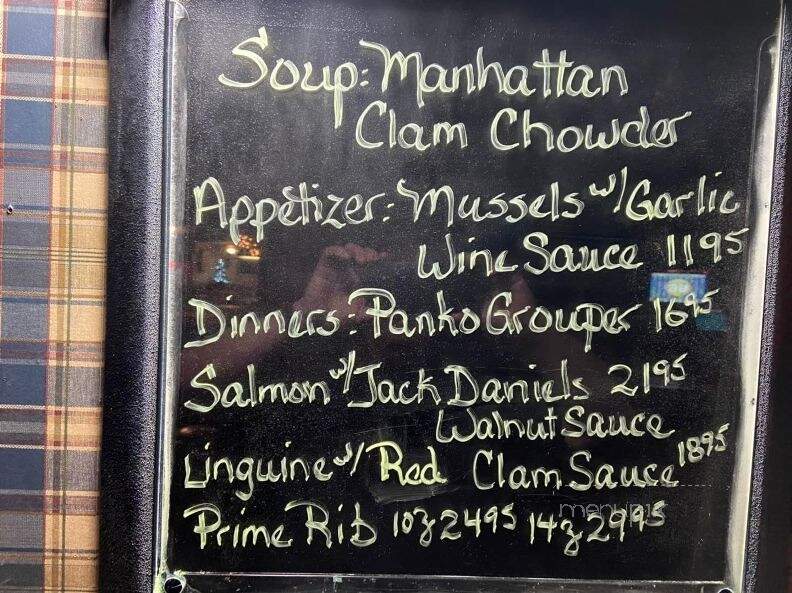 Soup: Manhattan
Clam Chowder
Appetizer: Mussels w/ Garlic
Wine Sauce 1195
Dinners: Panko Grouper 1695
Salmon w/ Jack Daniels 2195
Walnut Sauce
Linguine w/ Red Clam Sauce 1895
Prime Rib 10z 2495 14z 2995